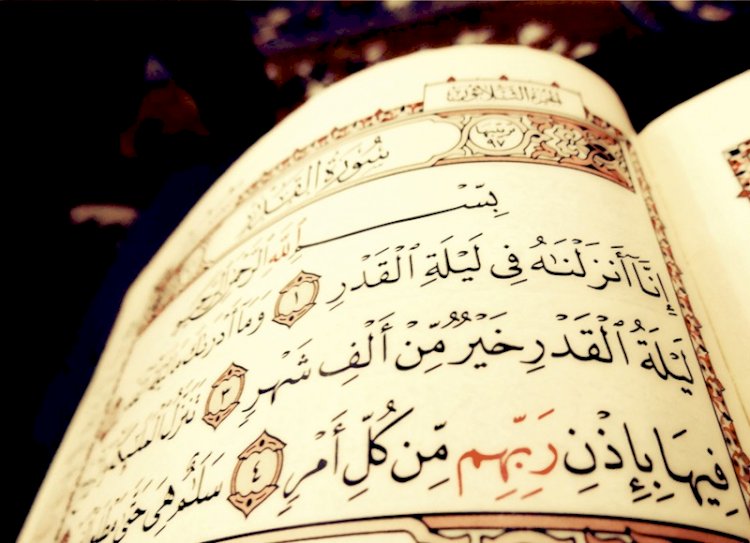 الجزء الثلاثون
سُورَةُ القَدْرِ ترتيبها ٩٧
بِسْمِ ٱللَّهِ ٱلرَّحْمَٰنِ ٱلرَّحِيمِ
إِنَّآ أَنزَلْنَٰهُ فِى لَيْلَةِ ٱلْقَدْرِ ١ وَمَآ أَدْرَىٰكَ
لَيْلَةُ ٱلْقَدْرِ خَيْرٌ مِّنْ أَلْفِ شَهْرٍ ٣ تَنَزَّلُ ٱلْمَلَٰٓئِكَةُ
فِيهَا بِإِذْنِ رَبِّهِم مِّن كُلِّ أَمْرٍ ٤ سَلَٰمٌ هِىَ حَتَّىٰ